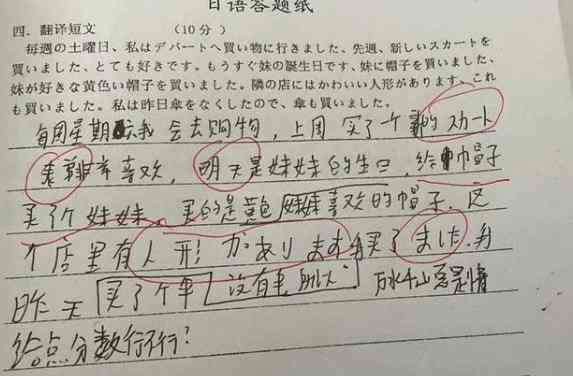 日语答题纸
四. 翻译短文 (10分)
毎週の土曜日、私はデパートへ買い物に行きました、先週、新しいスカートを
買いました、とても好きです。もうすぐ妹の誕生日です、妹に帽子を買いました、
妹が好きな黄色い帽子を買いました。隣の店にはかわいい人形があります、これ
も買いました。私は昨日傘をなくしたので、傘も買いました。
每周星期 我会去购物，上周买了个新的スカート
非常喜欢，明天是妹妹的生日，给 帽子
买个妹妹、买的是黄色妹妹喜欢的帽子. 这
个店里有人形があります 买了ました.我
昨天买了个伞没有伞所以 万水千山总是情
给点分数行不行?